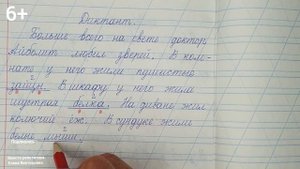 6+
Диктант.
Больше всего на свете доктор
Айболит любил зверей. В ком-
нате у него жили пушистые
зайцы. В шкафу у него жила
шустрая белка. На диване жил
колючий ёж. В сундуке жили
белые мыши.